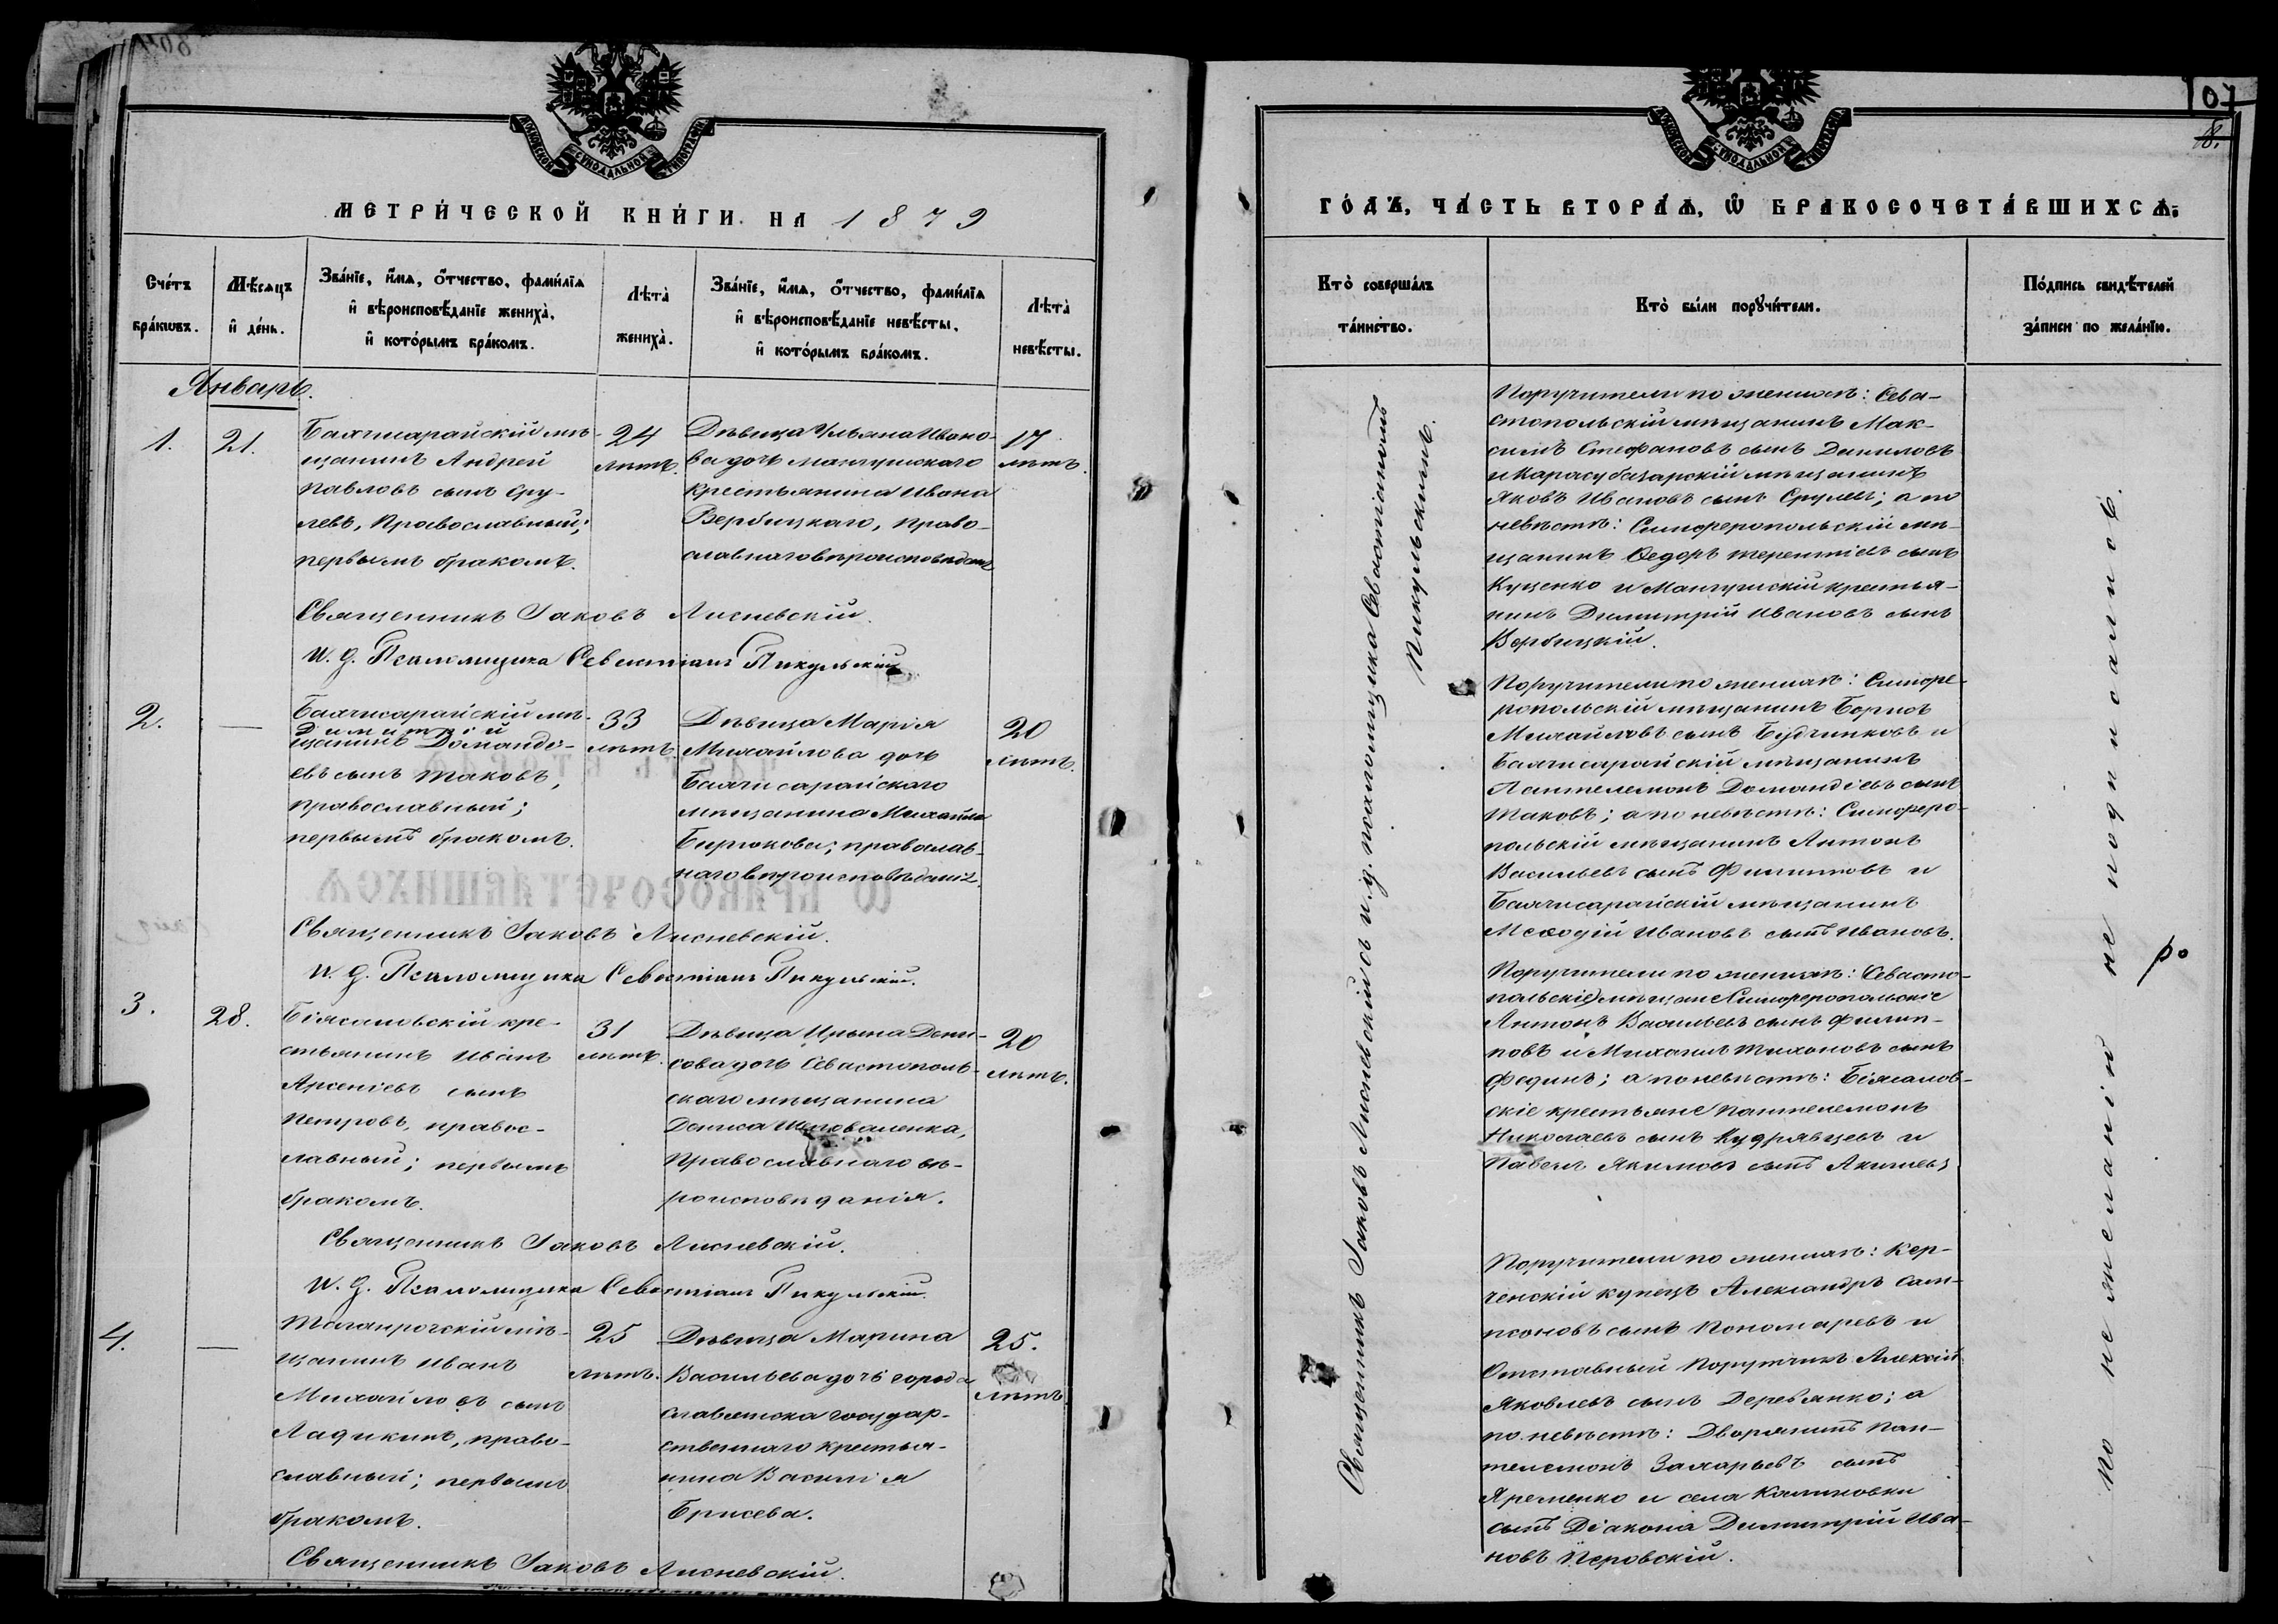 МОСКОВСКОЙ СѴНОДАЛЬНОЙ ТИПОГРАФІИ
МЕТРИ́ЧЕСКОЙ КНИ́ГИ НА 1879
Сче́тъ бра́кѡвъ.
Мѣ́сѧцъ и҆ де́нь.
Зва́нїе, и҆́мѧ, ѻ҆́тчество, фами́лїѧ
и҆ вѣроисповѣ́данїе женихà,
и҆ кото́рымъ бра́комъ.
Лѣтà женихà.
Зва́нїе, и҆́мѧ, ѻ҆́тчество, фами́лїѧ
и҆ вѣроисповѣ́данїе невѣ́сты,
и҆ кото́рымъ бра́комъ.
Лѣтà невѣ́сты.
Январь.
1.
21.
Бахчисарайскій мѣ-
щанинъ Андрей
Павловъ сынъ Сру-
левъ, Православный;
первымъ бракомъ.
24
лѣтъ.
Дѣвица Ульяна Ивано-
ва дочь мангушскаго
крестьянина Ивана
Вербицкаго, право-
славнаго вѣроисповѣданія
17
лѣтъ.
Священникъ Іаковъ Лисневскій.
И. д. Псаломщика Севастіанъ Пикульскій
2.
—
Бахчисарайскій мѣ-
Димитрій
щанинъ Доманде-
евъ сынъ Таковъ,
православный;
первымъ бракомъ.
33
лѣтъ.
Дѣвица Марія
Михайлова дочь
Бахчисарайскаго
мѣщанина Михаила
Бирюкова; православ-
наго вѣроисповѣданія.
20
лѣтъ.
Священникъ Іаковъ Лисневскій.
И. д. Псаломщика Севастіанъ Пикульскій.
3.
28.
Біясаловскій кре-
стьянинъ Иванъ
Арсеніевъ сынъ
Петровъ, правос-
лавный; первымъ
бракомъ.
31
лѣтъ.
Дѣвица Ирина Дени-
сова дочь Севастополь-
скаго мѣщанина
Дениса Шаповаленка,
Православнаго вѣ-
роисповѣданія.
20
лѣтъ.
Священникъ Іаковъ Лисневскій.
И. д. Псаломщика Севастіанъ Пикульскій.
4.
—
Таганрогскій мѣ-
щанинъ Иванъ
Михайловъ сынъ
Ладикинъ, право-
славный; первымъ
бракомъ.
25
лѣтъ.
Дѣвица Марина
Васильева дочь города
Славянска государ-
ственнаго крестья-
нина Василія
Брисева.
25.
лѣтъ
Священникъ Іаковъ Лисневскій.
107
18.
МОСКОВСКОЙ СѴНОДАЛЬНОЙ ТИПОГРАФІИ
ГО́ДЪ, ЧА́СТЬ ВТОРА́Ѧ, Ѽ БРАКОСОЧЕТА́ВШИХСѦ.
Ктò соверша́лъ
та́инство.
Ктò бы́ли порꙋчи́тели.
По́дпись свидѣ́телей
за́писи по жела́нїю.
Священникъ Іаковъ Лисневскій съ и. д. псаломщика Севастіаномъ
Пикульскимъ.
Поручители по женихѣ: Сева-
стопольскій мѣщанинъ Мак-
симъ Стефановъ сынъ Даниловъ
и Карасубазарскій мѣщанинъ
Яковъ Ивановъ сынъ Срулевъ; а по
невѣстѣ: Симферопольскій мѣ-
щанинъ Ѳедоръ Терентіевъ сынъ
Куценко и Мангушскій крестья-
нинъ Димитрій Ивановъ сынъ
Вербицкій.
Поручители по женихѣ: Симфе-
ропольскій мѣщанинъ Борисъ
Михайловъ сынъ Будчинковъ и
Бахчисарайскій мѣщанинъ
Пантелемонъ Домандіевъ сынъ
Таковъ; а по невѣстѣ: Симферо-
польскій мѣщанинъ Антонъ
Васильевъ сынъ Филиповъ и
Бахчисарайскій мѣщанинъ
Меѳодій Ивановъ сынъ Ивановъ.
Поручители по женихѣ: Севасто-
польскіе мѣщане Симферопольскіе
Антонъ Васильевъ сынъ Филип-
повъ и Михаилъ Тихоновъ сынъ
Фединъ; а по невѣстѣ: Біясалов-
скіе крестьяне Пантелемонъ
Николаевъ сынъ Кудрявцевъ и
Павелъ Якимовъ сынъ Акимовъ
Поручители по женихѣ: Кер-
ченскій купецъ Александръ Сам-
псоновъ сынъ Пономаревъ и
Отставный Поручикъ Алексій
Яковлевъ сынъ Деревянко; а
по невѣстѣ: Дворянинъ Пан-
телемонъ Захарьевъ сынъ
Яременко и села Калиновки
сынъ Діакона Димитрій Ива-
новъ Перовскій.
по не желанію не подписалис.